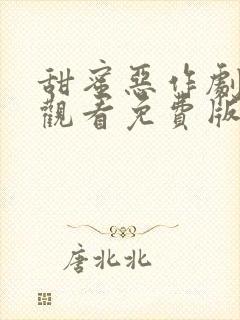 甜蜜惡作劇
觀看免費版
唐北北